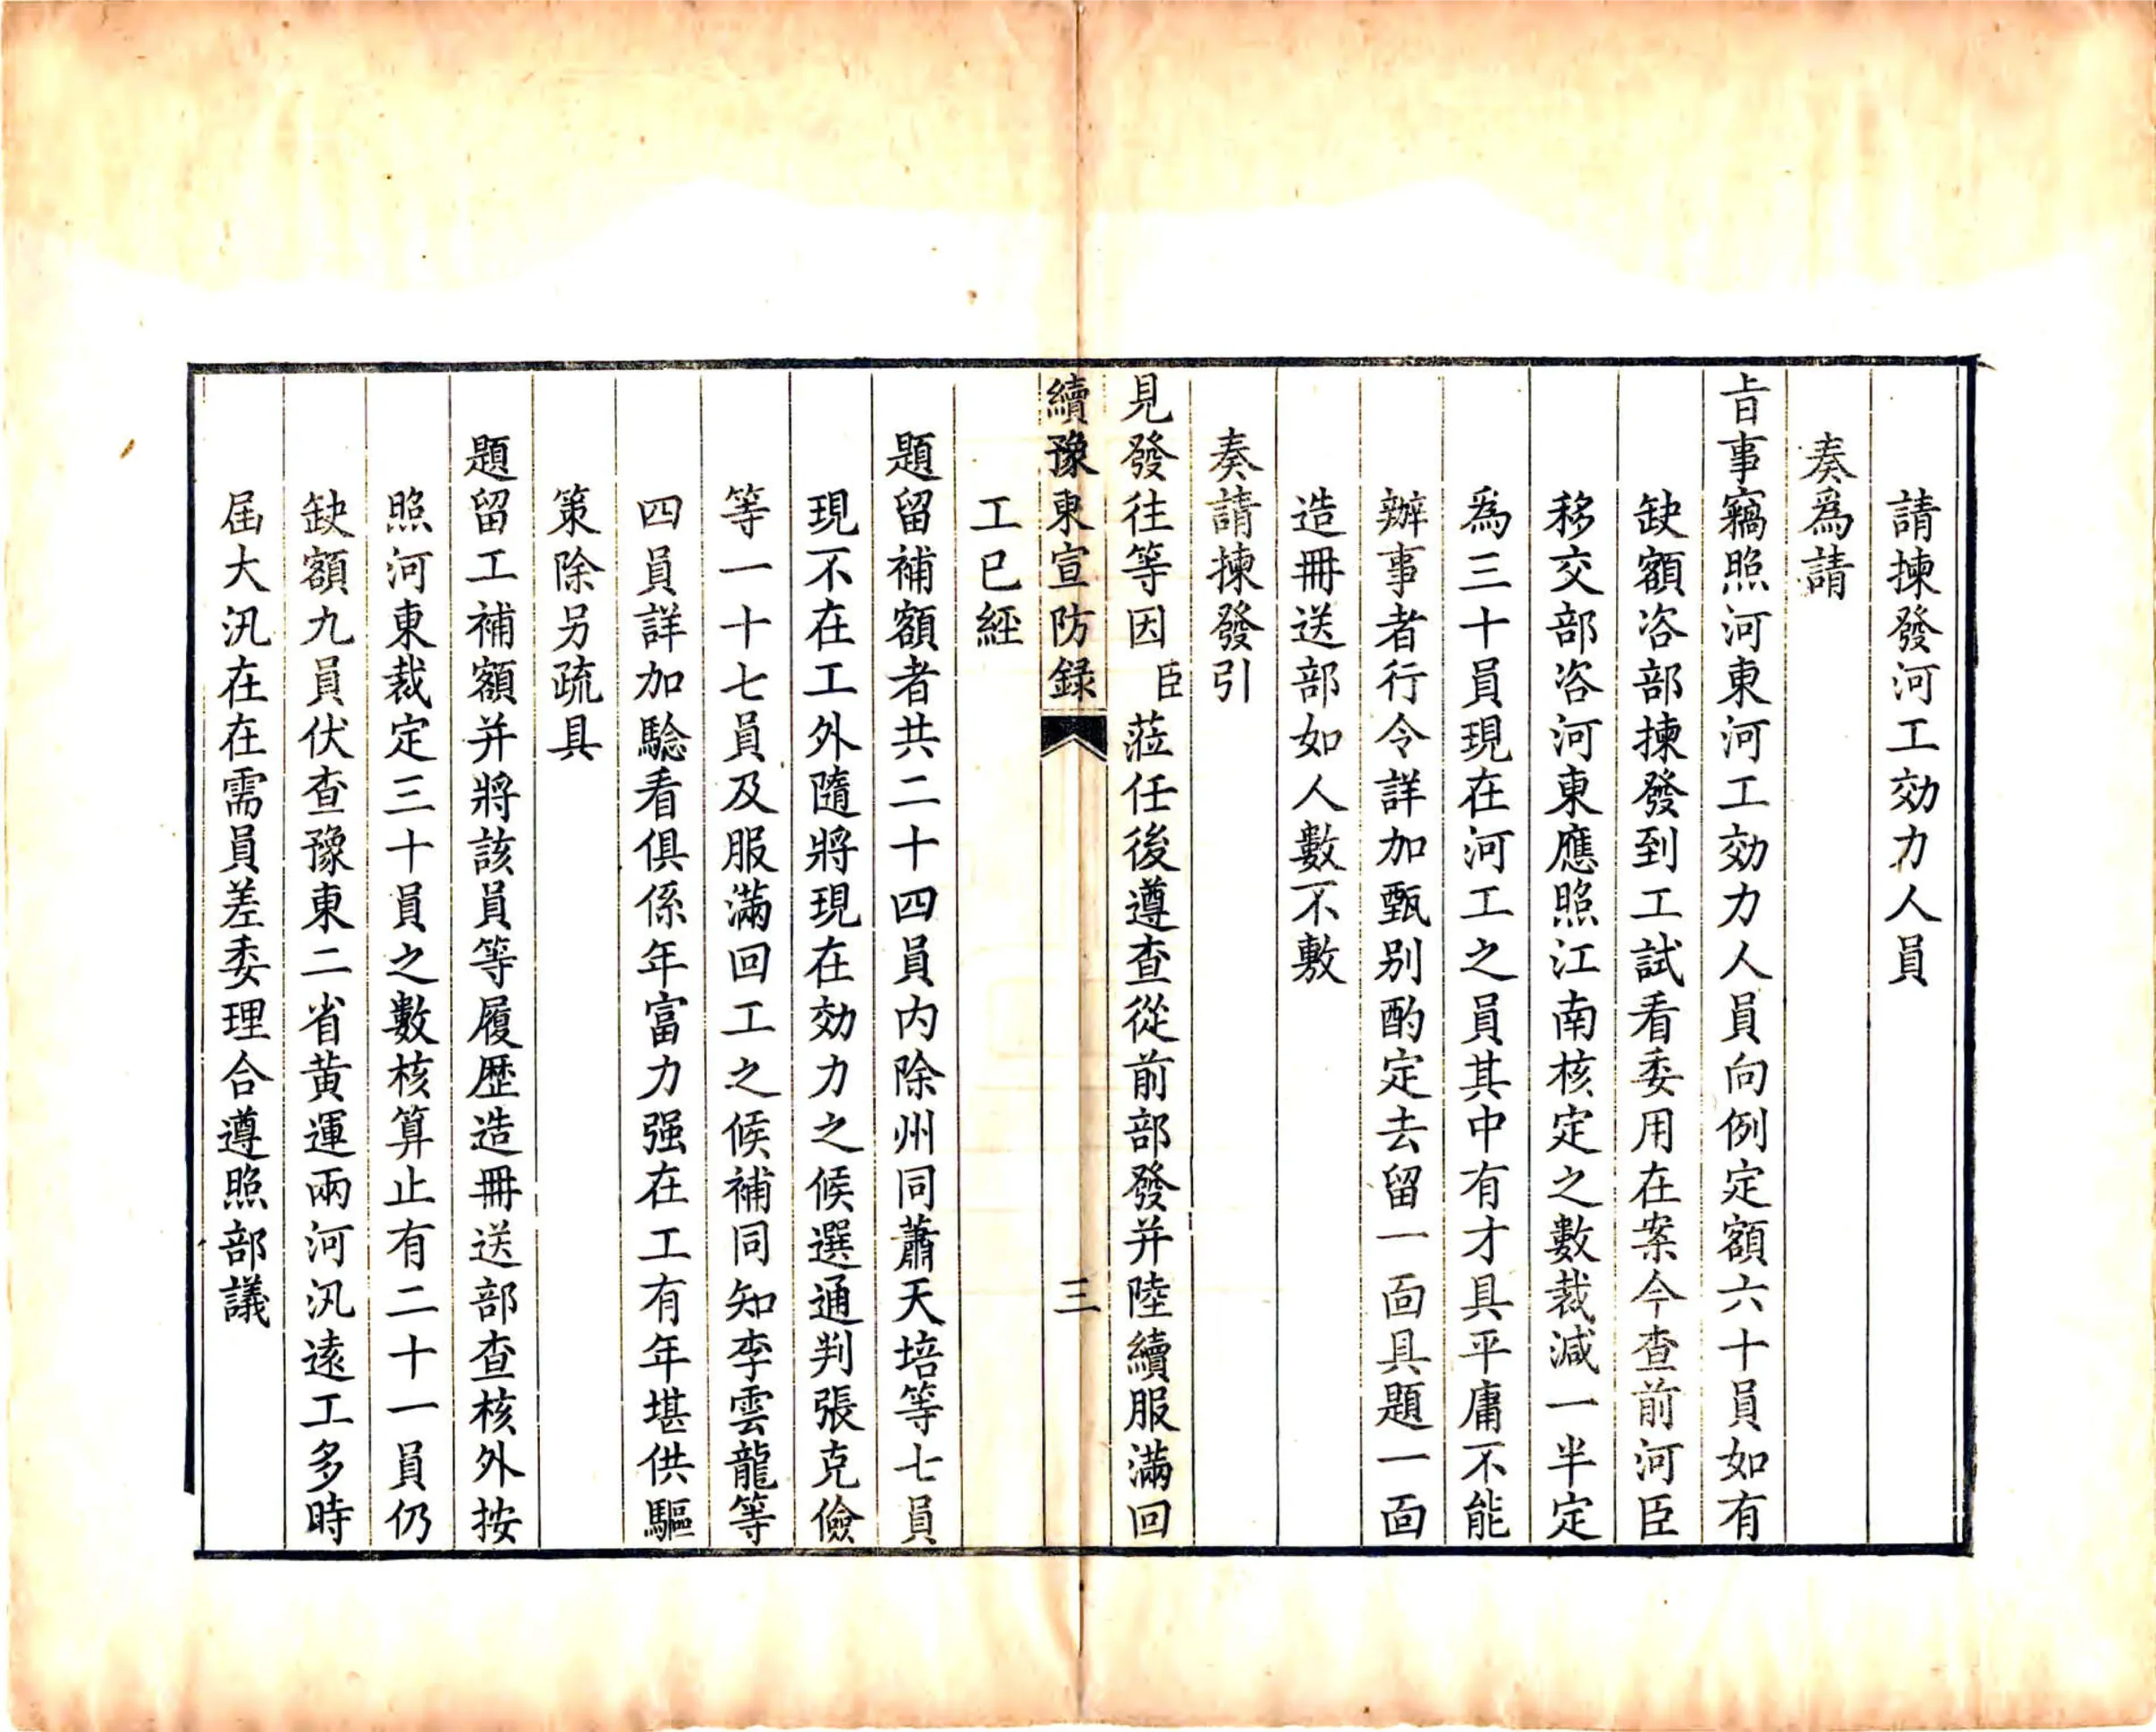 請揀發河工効力人員
奏爲請
㫖事竊照河東河工効力人員向例定額六十員如有
缺額咨部揀發到工試看委用在案今查前河臣
移交部咨河東應照江南核定之數裁減一半定
爲三十員現在河工之員其中有才具平庸不能
辦事者行令詳加甄别酌定去留一面具題一面
造冊送部如人數不敷
奏請揀發引
見發往等因臣蒞任後遵查從前部發并陸續服滿回
續豫東宣防録
三
工已經
題留補額者共二十四員内除州同蕭天培等七員
現不在工外隨將現在効力之候選通判張克儉
等一十七員及服滿回工之候補同知李雲龍等
四員詳加騐看俱係年富力强在工有年堪供驅
策除另疏具
題留工補額并將該員等履歴造冊送部查核外按
照河東裁定三十員之數核算止有二十一員仍
缺額九員伏查豫東二省黄運兩河汛逺工多時
届大汛在在需員差委理合遵照部議